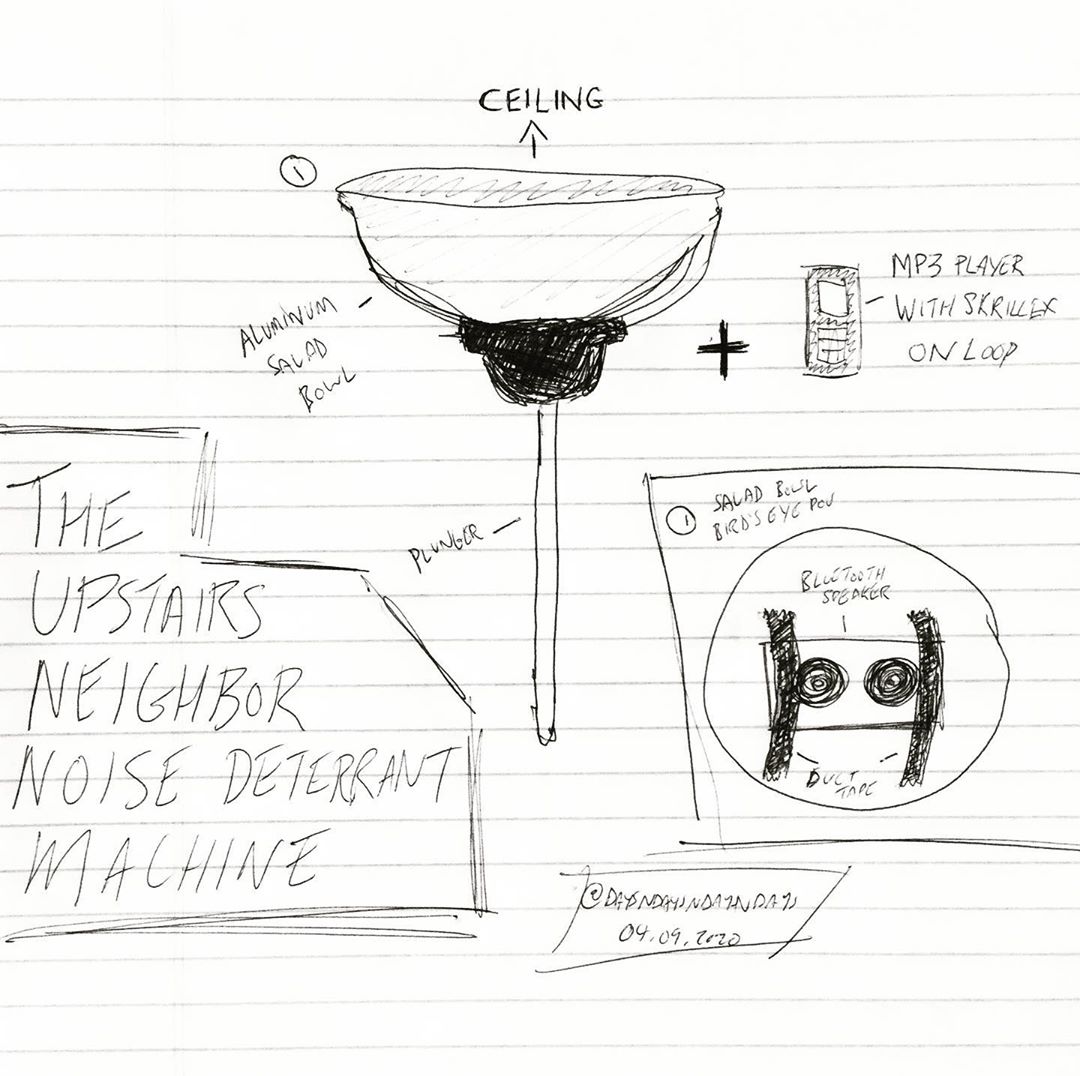 CEILING
↑
①
ALUMINUM
SALAD
BOWL
+
MP3 PLAYER
WITH SKRILLEX
ON LOOP
PLUNGER
THE
UPSTAIRS
NEIGHBOR
NOISE DETERRANT
MACHINE
① SALAD BOWL
BIRD'S EYE POV
BLUETOOTH
SPEAKER
DUCT
TAPE
@DAYSNDAYSNDAYSNDAYS
04.09.2020